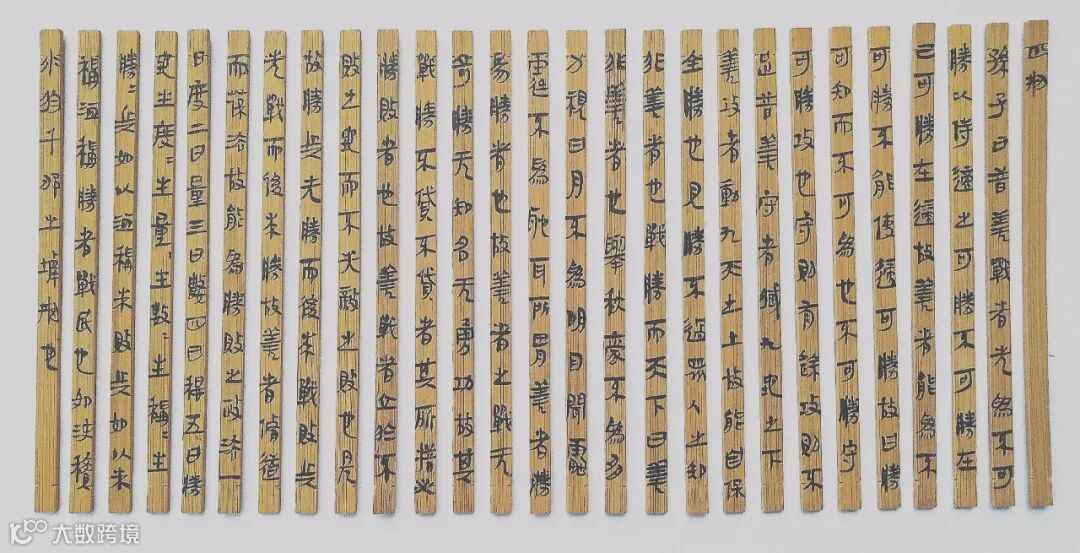 四刑
孫子曰昔善戰者先爲不可
勝以侍適之可勝不可勝在
己可勝在適故善者能爲不
可勝不能使適可勝故曰勝
可知而不可爲也不可勝守
可勝攻也守則有餘攻則不
足昔善守者臧九地之下
善攻者動九天之上故能自保
全勝也見勝不過衆人之知
非善者也戰勝而天下曰善
非善者也舉秋豪不爲多
力視日月不爲明目聞雷
霆不爲聰耳所胃善者勝
易勝者也故善者之戰无
奇勝无知名无勇功故其
戰勝不貸不貸者其所措必
勝敗者也故善戰者立於不
敗之地而不失敵之敗也是
故勝兵先勝而後求戰敗兵
先戰而後求勝故善者脩道
而葆法故能爲勝敗之政法一
曰度二曰量三曰數四曰稱五曰勝
地生度=生量=生數=生稱=生
勝=兵如以洫稱朱敗兵如以朱
稱洫稱勝者戰民也如決積
水於千那之刑也
大数跨境